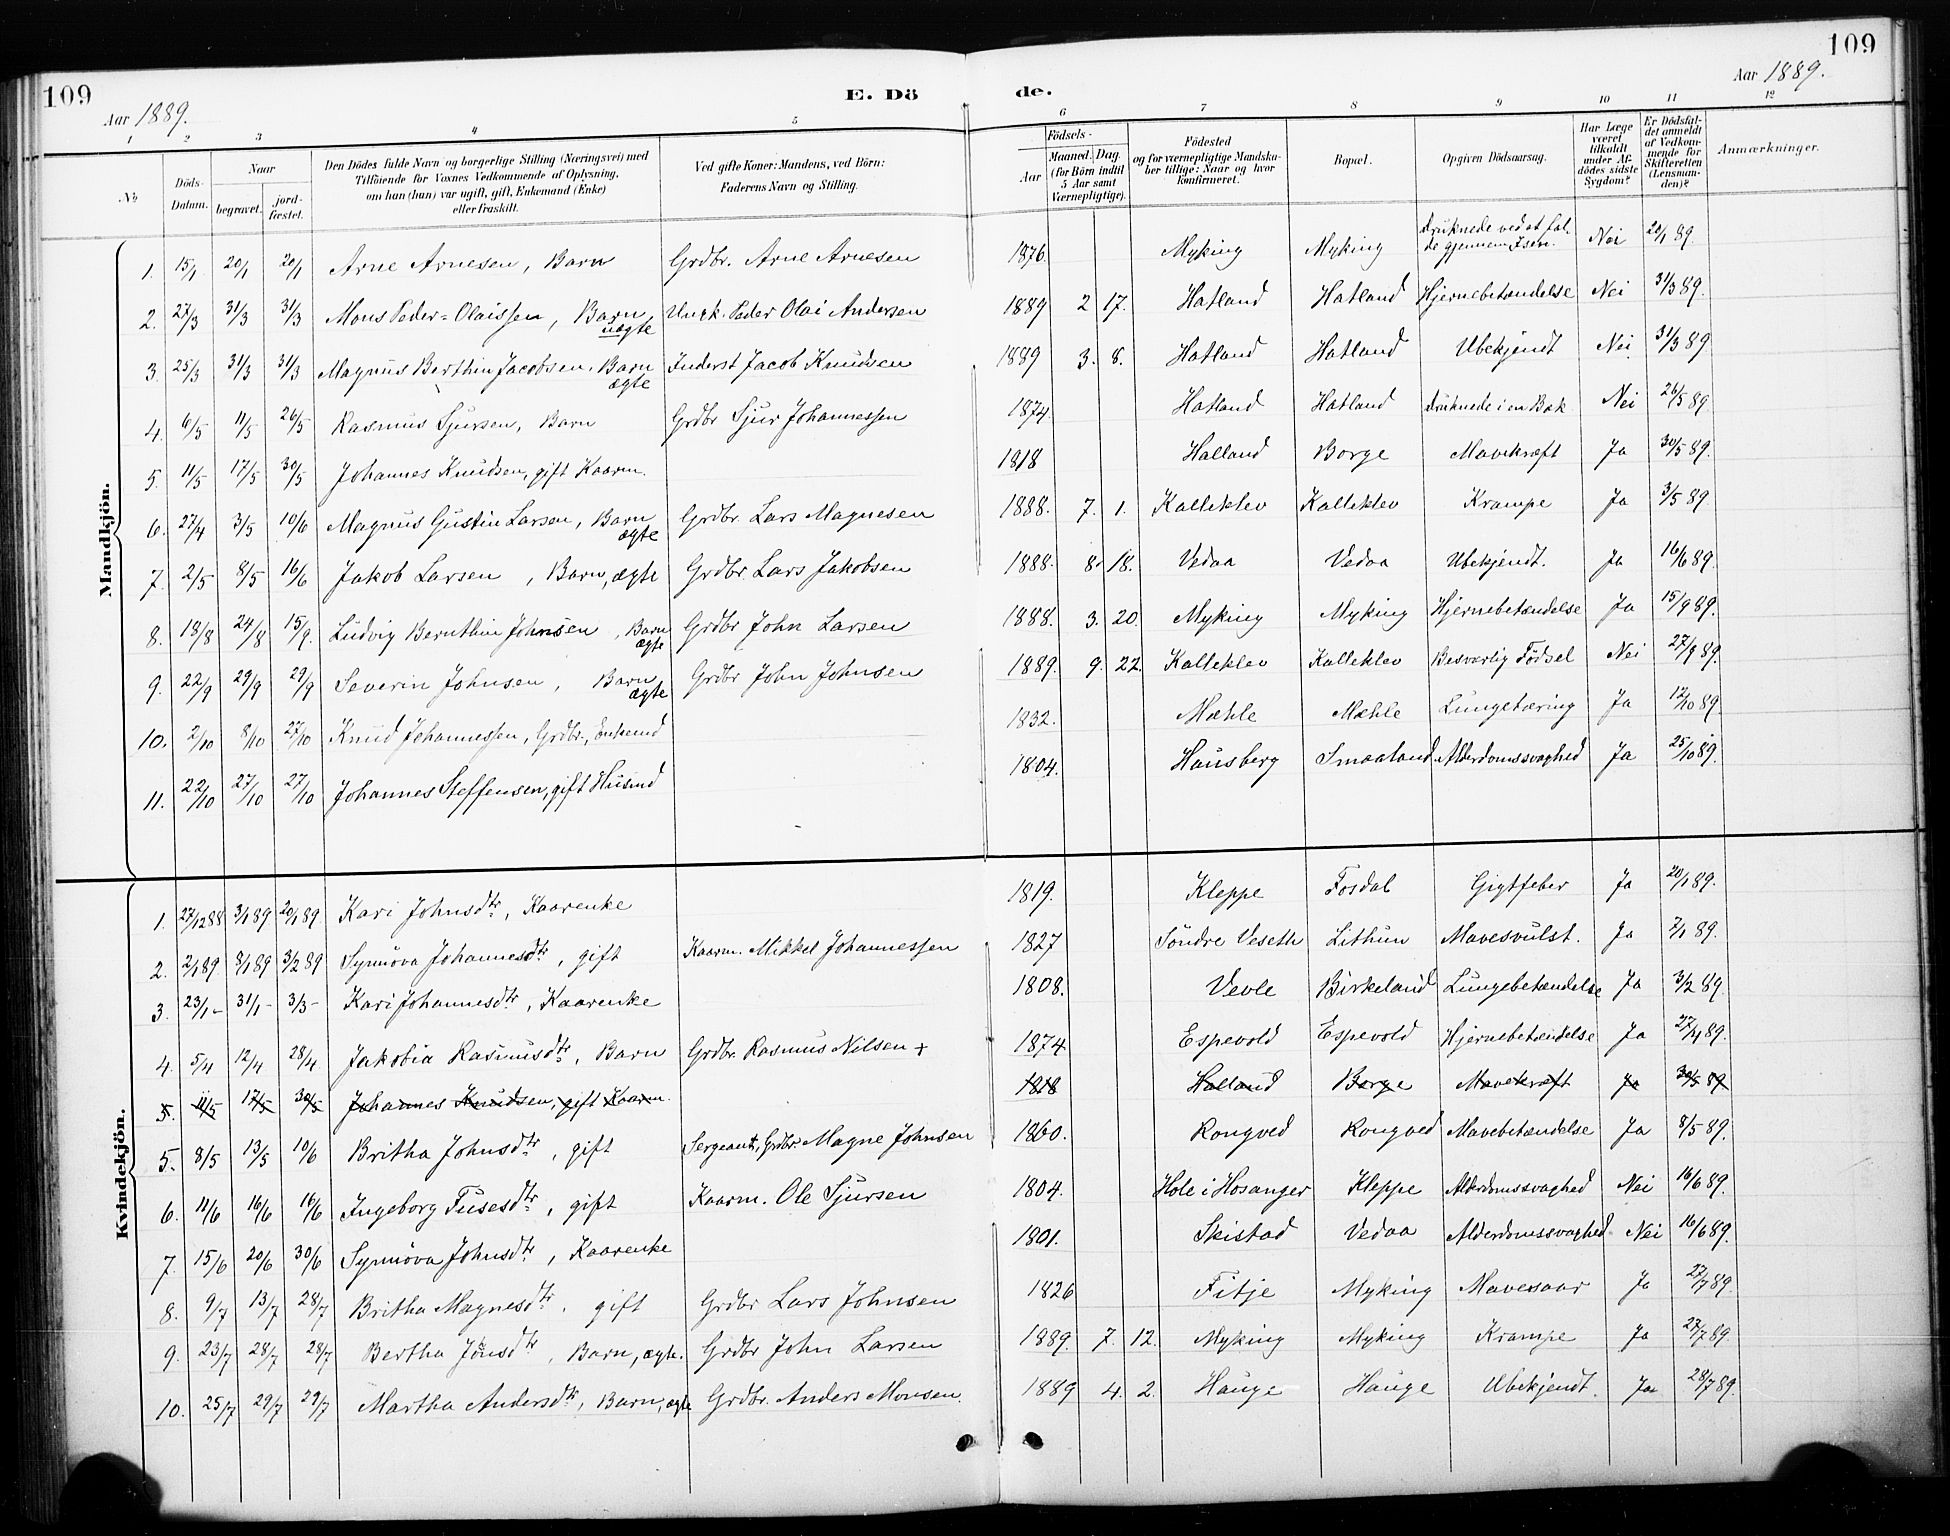 109
Aar 1889.
E. Dö
de.
109
Aar 1889.
1 2 3 4 5 6 7 8 9 10 11 12
No
Döds-Datum.
Naar
begravet.
jord-fæstet.
Den Dödes fulde Navn og borgerlige Stilling (Næringsvei) med
Tilföiende for Voxnes Vedkommende af Oplysning,
om han (hun) var ugift, gift, Enkemand (Enke)
eller fraskilt.
Ved gifte Koner: Mandens, ved Börn:
Faderens Navn og Stilling.
Födsels-
Aar
Maaned. Dag.
(for Börn indtil
5 Aar samt
Værnepligtige).
Födested
og for værnepligtige Mandska-
ber tillige: Naar og hvor
konfirmeret.
Bopæl.
Opgiven Dödsaarsag.
Har Læge
været
tilkaldt
under Af-
dödes sidste
Sygdom?
Er Dödsfal-
det anmeldt
af Vedkom-
mende for
Skifteretten
(Lensman-
den)?
Anmærkninger.
Mandkjön.
1. 15/1 20/1 20/1 Arne Arnesen, Barn Grdbr. Arne Arnesen 1876. Myking Myking druknede ved at fal-de gjennem Isen. Nei 20/1 89.
2. 27/3 31/3 31/3 Mons Peder-Olaissen, Barn uægte Ungk. Peder Olai Andersen 1889 2 17. Hatland Hatland Hjernebetændelse Nei 31/3 89.
3. 25/3 31/3 31/3 Magnus Berthin Jacobsen, Barn ægte Inderst Jacob Knudsen 1889 3. 8. Hatland Hatland Ubekjendt Nei 31/3 89
4. 6/5 11/5 26/5 Rasmus Sjursen, Barn Grdbr Sjur Johannessen 1874. Hatland Hatland druknede i en Bæk Nei 26/5 89
5. 11/5 17/5 30/5 Johannes Knudsen, gift Kaarm. 1818 Halland Borge Mavekræft Ja 30/5 89.
6. 27/4 3/5 10/6 Magnus Gustin Larsen, Barn ægte Grdbr. Lars Magnesen 1888. 7. 1. Kalleklev Kalleklev Krampe Ja 3/5 89
7. 2/5 8/5 16/6 Jakob Larsen, Barn, ægte Grdbr. Lars Jakobsen 1888. 8. 18. Vedaa Vedaa Ubekjendt. Ja 16/6 89.
8. 18/8 24/8 15/9. Ludvig Bernthin Johnsen, Barn ægte Grdbr John Larsen 1888. 3. 20. Myking Myking Hjernebetændelse Ja 15/9 89.
9. 22/9 29/9 29/9 Severin Johnsen, Barn ægte Grdbr John Johnsen 1889. 9. 22. Kalleklev Kalleklev Besværlig Födsel Nei 27/9 89.
10. 2/10 8/10 27/10 Knud Johannessen, Grdbr., Enkemd 1832. Mæhle Mæhle Lungetæring Ja 12/10 89.
11. 22/10 27/10 27/10 Johannes Steffensen, gift Husmd 1804. Hausberg Smaaland Alderdomssvaghed Ja 25/10 89.
Kvindekjön.
1. 27/12 88 3/1 89 20/1 89. Kari Johnsdtr, Kaarenke 1819. Kleppe Fosdal Gigtfeber Ja 20/1 89.
2. 2/1 89 8/1 89 3/2 89 Synnöva Johannesdtr, gift Kaarm. Mikkel Johannessen 1827 Söndre Veseth Lithun Mavesvulst. Ja 7/1 89.
3. 23/1 - 31/1 - 3/3 - Kari Johannesdtr, Kaarenke 1808. Vevle Birkeland Lungebetændelse Ja 3/2 89.
4. 5/4 12/4 28/4 Jakobia Rasmusdtr, Barn Grdbr. Rasmus Nilsen + 1874. Espevold Espevold Hjernebetændelse Ja 27/4 89.
5. 11/5 17/5 30/5 Johannes Knudsen, gift Kaarm. 1818 Halland Borge Mavekræft Ja 30/5 89
5. 8/5 13/5 10/6 Britha Johnsdtr, gift Sergeant, Grdbr. Magne Johnsen 1860. Rongved Rongved Mavebetændelse Ja 8/5 89.
6. 11/6 16/6 16/6 Ingeborg Tusesdtr, gift Kaarm. Ole Sjursen 1804. Hole i Hosanger Kleppe Alderdomssvaghed Nei 16/6 89.
7. 15/6 20/6 30/6 Synnöva Johnsdtr, Kaarenke 1801. Skistad Vedaa Alderdomssvaghed Nei 16/6 89.
8. 9/7 13/7 28/7 Britha Magnesdtr, gift Grdbr Lars Johnsen 1826 Fitje Myking Mavesaar Ja 27/7 89.
9. 23/7 28/7 28/7 Bertha Jonsdtr, Barn, ægte. Grdbr John Larsen 1889. 7. 12. Myking Myking Krampe Ja 27/7 89.
10. 25/7 29/7 29/7 Martha Andersdtr, Barn, ægte Grdbr. Anders Monsen. 1889 4. 2. Hauge Hauge Ubekjendt. Ja 28/7 89.